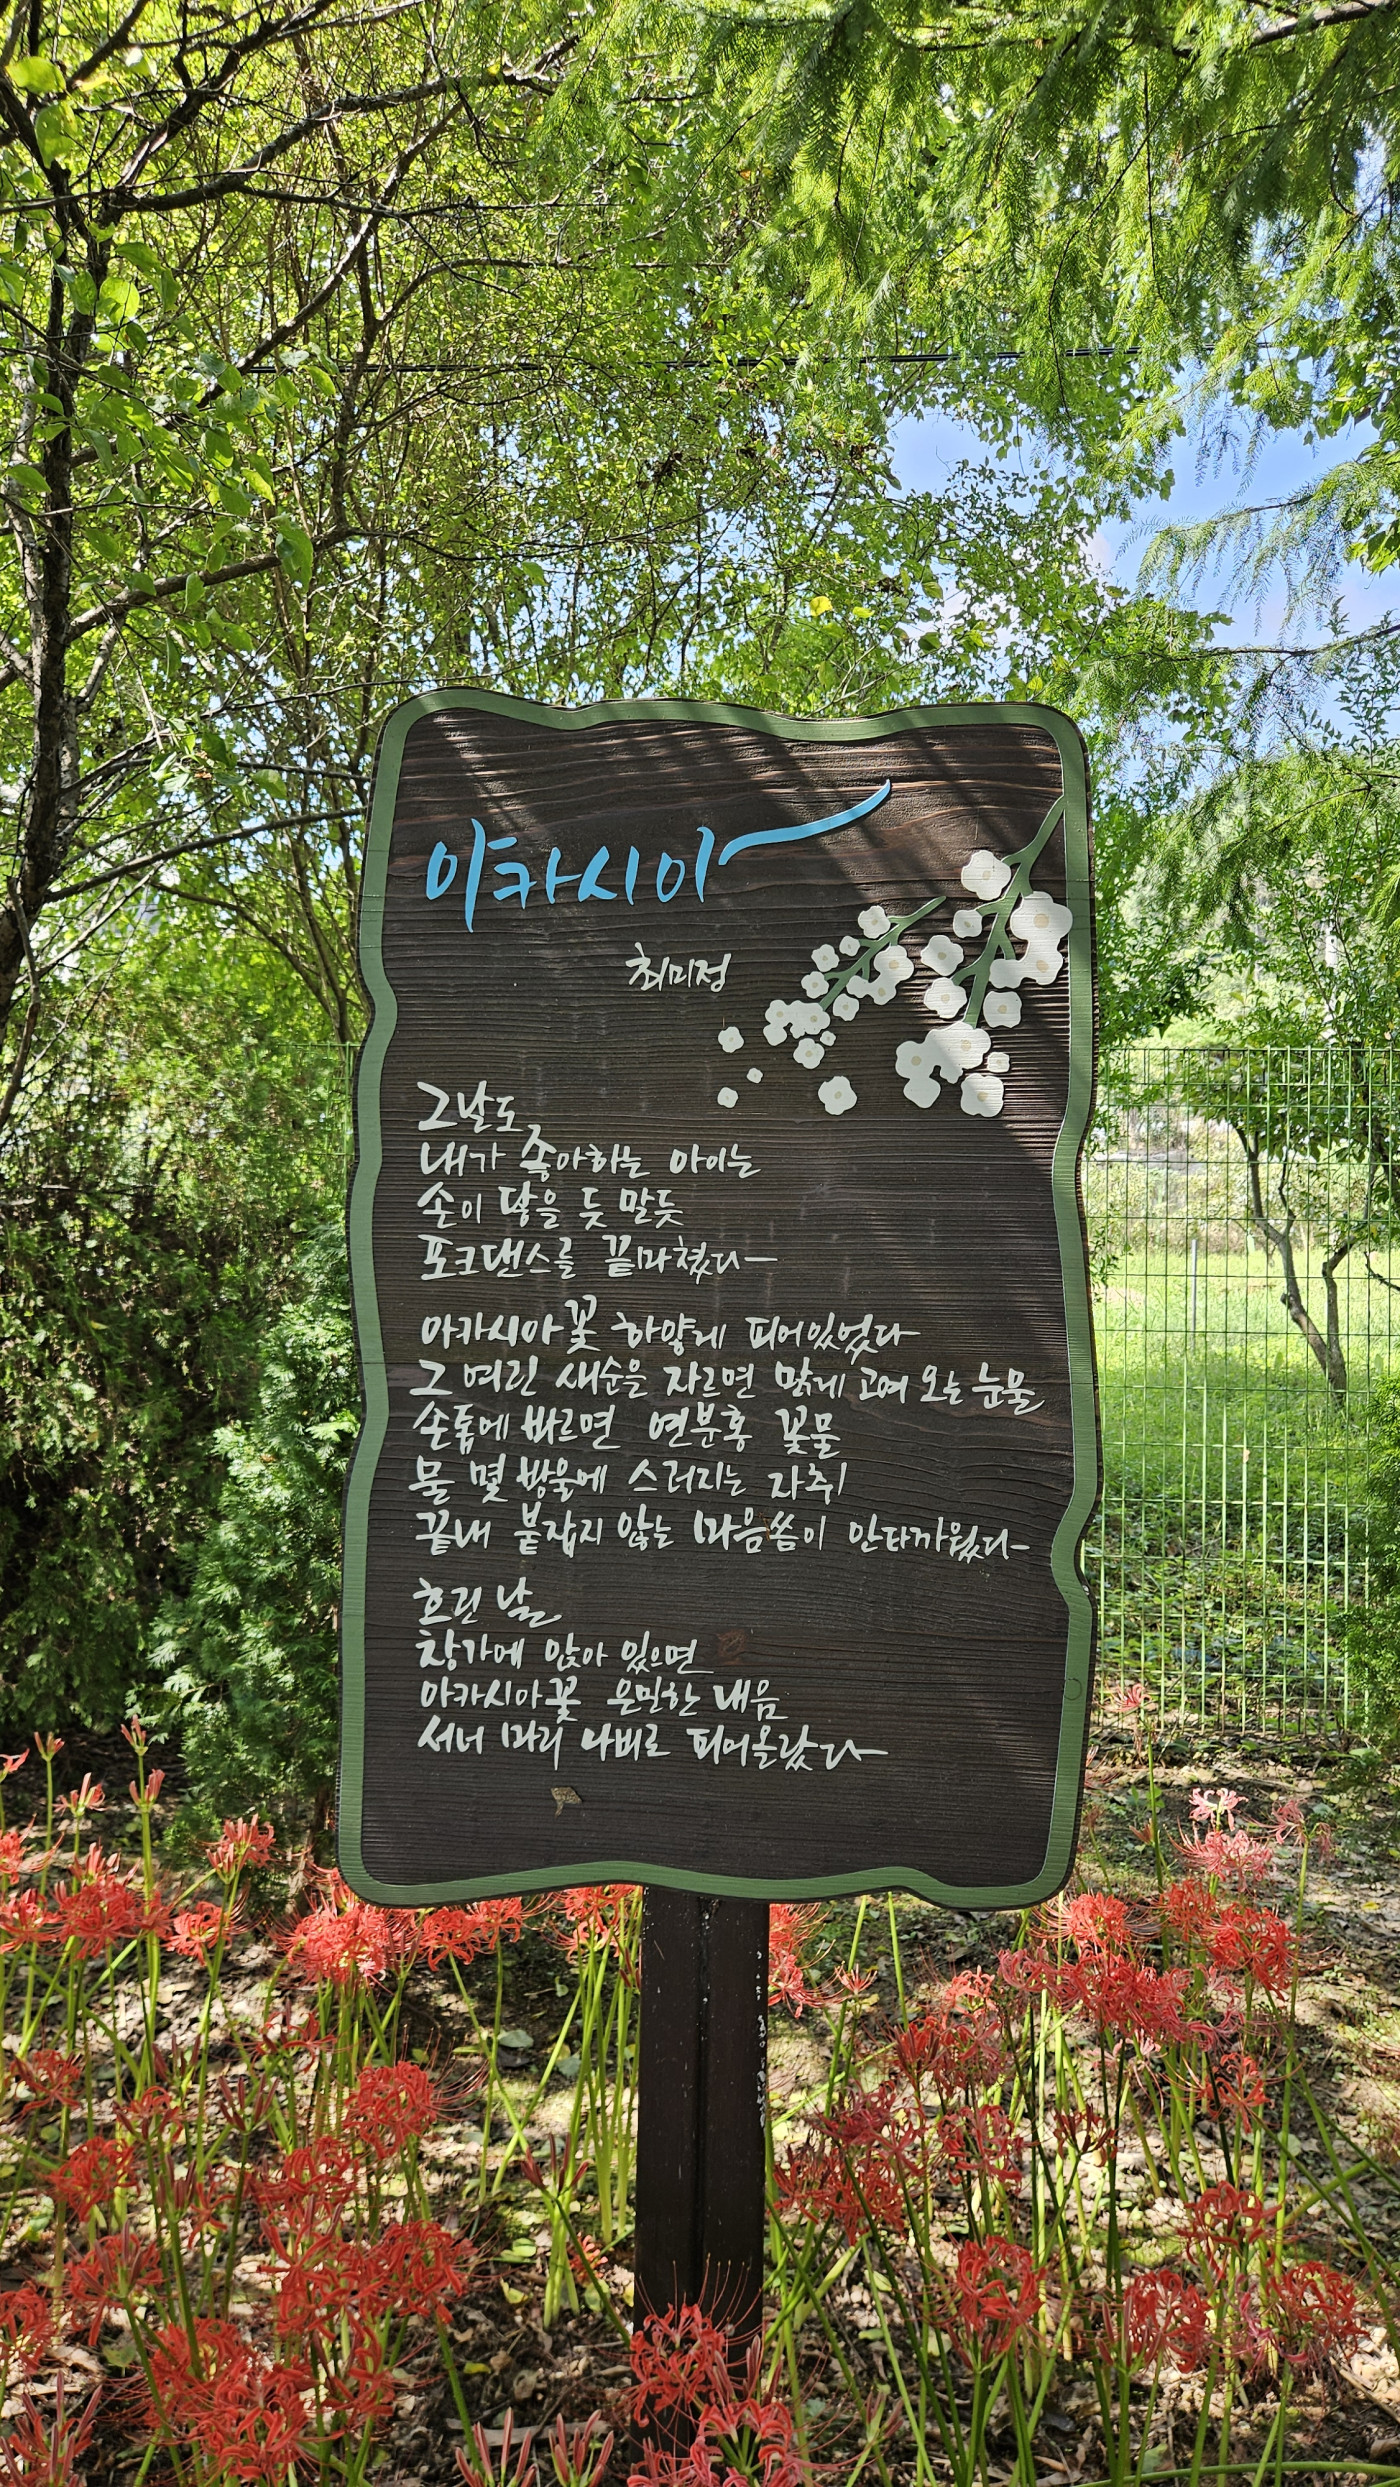 아카시아
최미정
그날도
내가 좋아하는 아이는
손이 닿을 듯 말듯
포크댄스를 끝마쳤다
아카시아꽃 하얗게 피어있었다
그 여린 새순을 자르면 맑게 고여 오는 눈물
손톱에 바르면 연분홍 꽃물
물 몇 방울에 스러지는 자취
끝내 붙잡지 않는 마음씀이 안타까웠다
흐린 날
창가에 앉아 있으면
아카시아꽃 은밀한 내음
서너 마리 나비로 피어올랐다